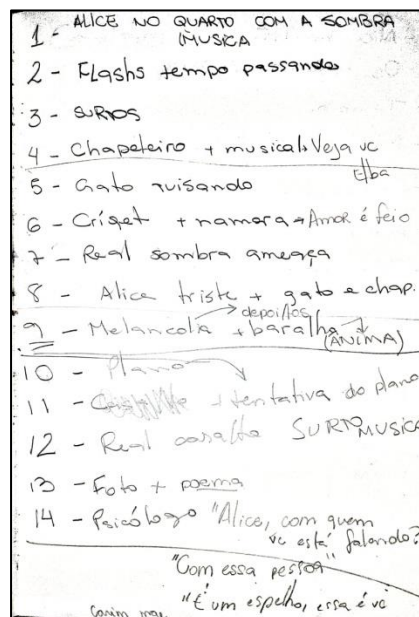 1 - ALICE NO QUARTO COM A SOMBRA
(MUSICA
2 - Flashs tempo passando
3 - SURTOS
4 - Chapeleiro + musical Veja vc
Elba
5 - Gato avisando
6 - + namoro → Amor é feio
7 - Real sombra ameaça
8 - Alice triste + gato e chap.
depoi/los
9 - Melancolia + baralho
(ANIMA)
10 - Plano
11 - + tentativa do plano
12 - Real SURTO MUSICA
13 - Foto + poema
14 - Psicólogo "Alice, com quem
vc está falando?
"Com essa pessoa"
"É um espelho, essa é vc